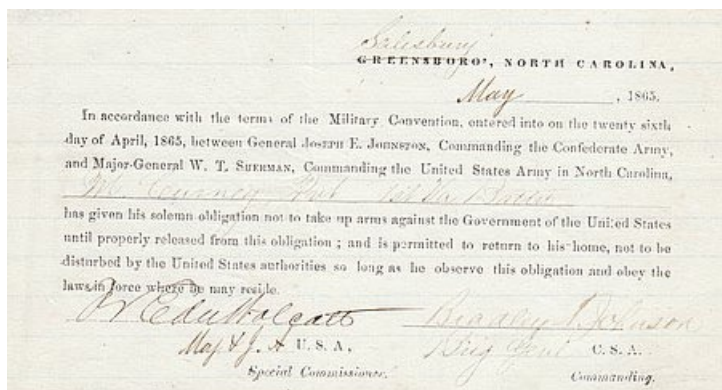 Salisbury
GREENSBORO', NORTH CAROLINA,
May , 1865.
In accordance with the terms of the Military Convention, entered into on the twenty sixth
day of April, 1865, between General JOSEPH E. JOHNSTON, Commanding the Confederate Army,
and Major-General W. T. SHERMAN, Commanding the United States Army in North Carolina,
has given his solemn obligation not to take up arms against the Government of the United States
until properly released from this obligation ; and is permitted to return to his home, not to be
disturbed by the United States authorities so long as he observe this obligation and obey the
laws in force where he may reside.
Bradley T Johnson
Maj & J. A U. S. A,
Brig Genl C. S. A.
Special Commissioner.
Commanding.